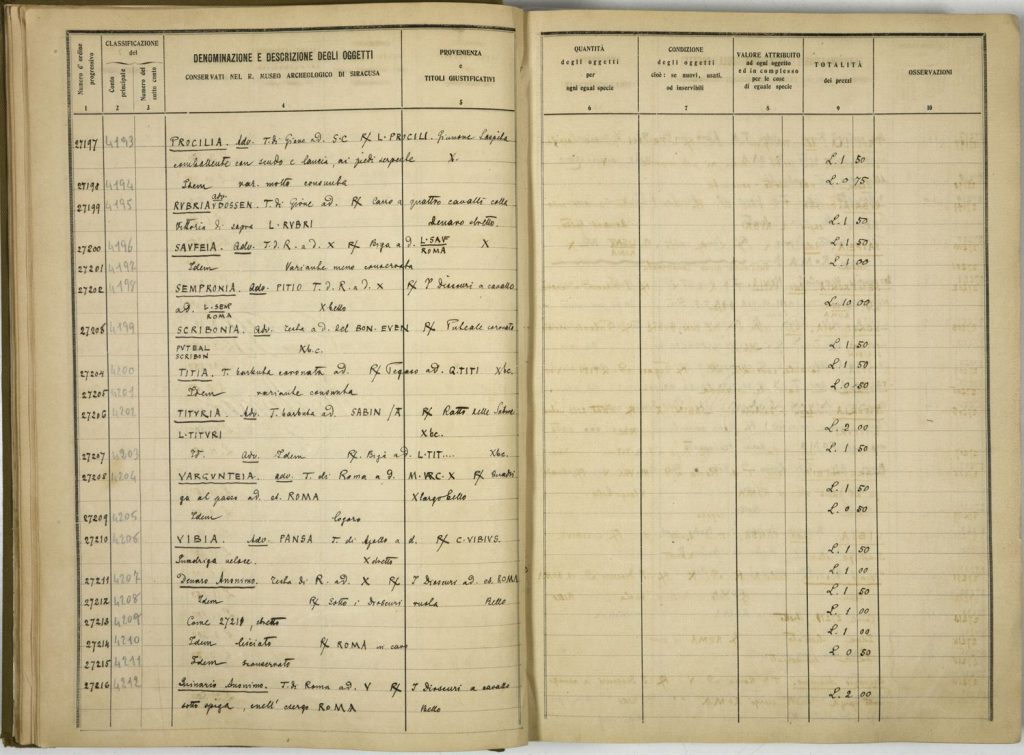 Numero d'ordine progressivo
CLASSIFICAZIONE del
Conto principale
Numero del sotto conto
DENOMINAZIONE E DESCRIZIONE DEGLI OGGETTI
CONSERVATI NEL R. MUSEO ARCHEOLOGICO DI SIRACUSA
PROVENIENZA
e
TITOLI GIUSTIFICATIVI
QUANTITÀ
degli oggetti
per
ogni egual specie
CONDIZIONE
degli oggetti
cioè: se nuovi, usati,
od inservibili
VALORE ATTRIBUITO
ad ogni oggetto
ed in complesso
per le cose
di eguale specie
TOTALITÀ
dei prezzi
OSSERVAZIONI
1 2 3 4 5 6 7 8 9 10
27197 4193 PROCILIA. Adv. T. di Giove ad. S·C R/ L·PROCILI. Giunone Sospita
combattente con scudo e lancia, ai piedi serpente X. L. 1 50
27198 4194 Idem var. molto consunta L. 0 75
27199 4195 RVBRIA adv. DOSSEN. T. di Giove ad. R/ Carro a quattro cavalli colla
Vittoria di sopra L·RVBRI denaro stretto. L. 1 50
27200 4196 SAVFEIA. Adv. T. d. R. a d. X R/ Biga a d. L·SAVF ROMA X L. 1 50
27201 4197 Idem Variante meno conservata L. 1 00
27202 4198 SEMPRONIA. Adv. PITIO T. d. R. a d. X R/ I Dioscuri a cavallo
ad. L·SEMP ROMA X bello L. 10 00
27203 4199 SCRIBONIA. Adv. testa ad. del BON·EVEN R/ Puteale coronato
PVTEAL SCRIBON X b.c. L. 1 50
27204 4200 TITIA. T. barbuta coronata ad. R/ Pegaso ad. Q.TITI X bc. L. 1 50
27205 4201 Idem variante consunta L. 0 50
27206 4202 TITVRIA. Adv. T. barbuta ad. SABIN R/ Ratto delle Sabine
L·TITVRI X bc. L. 2 00
27207 4203 Id. adv. Idem R/ Biga a d. L·TIT.... X bc. L. 1 50
27208 4204 VARGVNTEIA. adv. T. di Roma a d. M·VRC·X R/ Quadri
ga al passo ad. es. ROMA X largo bello L. 1 50
27209 4205 Idem logoro L. 0 50
27210 4206 VIBIA. Adv. PANSA T. di Apollo a d. R/ C·VIBIVS.
Quadriga veloce. X stretto L. 1 50
27211 4207 Denaro Anonimo. testa di R. ad. X R/ I Dioscuri ad. es. ROMA L. 1 00
27212 4208 Idem R/ Sotto i Dioscuri ruota Bello L. 1 50
27213 4209 Come 27211, stretto L. 1 00
27214 4210 Idem lisciato R/ ROMA in cavo L. 1 00
27215 4211 Idem sconservato L. 0 50
27216 4212 Quinario Anonimo. T. di Roma ad. V R/ I Dioscuri a cavallo
sotto spiga, nell' esergo ROMA Bello L. 2 00